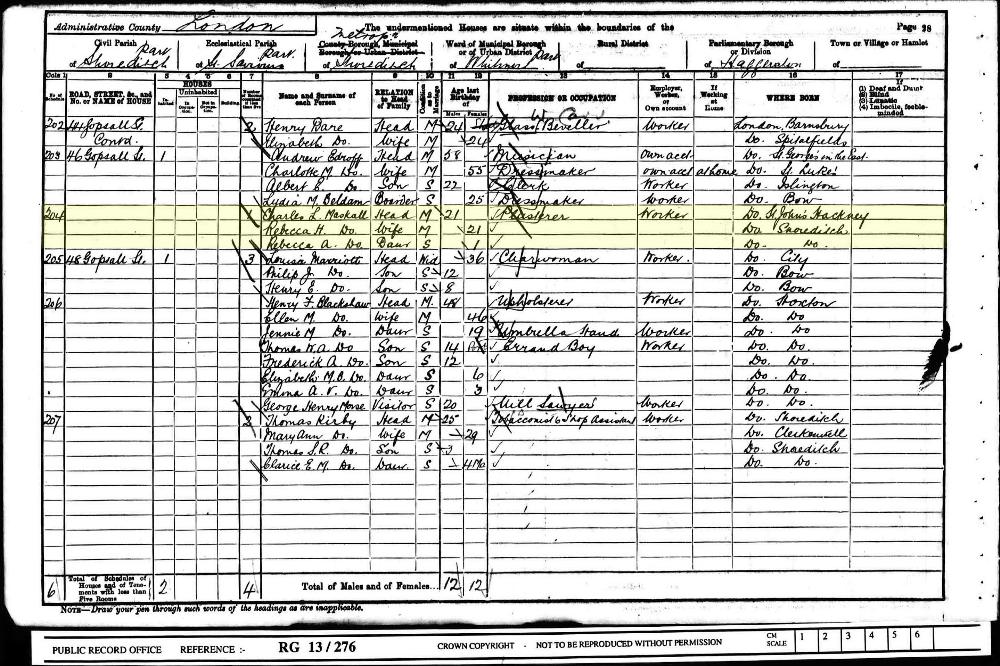 Administrative County London The undermentioned Houses are situate within the boundaries of the Page 38
Civil Parish Ecclesiastical Parish County Borough, Municipal Borough or Urban District Ward of Municipal Borough or of Urban District Rural District Parliamentary Borough or Division Town or Village or Hamlet
Part of Shoreditch Part of St. Saviours Metrop. of Shoreditch Part of of Haggerston of
Cols 1 2 3 4 5 6 7 8 9 10 11 12 13 14 15 16 17
No. of Schedule ROAD, STREET, &c., and No. or NAME of HOUSE HOUSES Inhabited Uninhabited In Occupation Not in Occupation Building Name and Surname of each Person RELATION to Head of Family Condition as to Marriage Age last Birthday of Males Females PROFESSION OR OCCUPATION Employer, Worker, or Own account If Working at Home WHERE BORN (1) Deaf and Dumb (2) Blind (3) Lunatic (4) Imbecile, feeble-minded
202 Gopsall St. 2 Henry Dare Head M 24 Glass Beveller Worker London, Barnsbury
Contd. Elizabeth Do. Wife M 24 Do. Spitalfields
203 46 Gopsall St. 1 Andrew Head M 58 Musician own acct. Do. St. Georges in the East
Charlotte M. Do. Wife M 55 Dressmaker own acct at home Do. St. Lukes
Albert E. Do Son S 22 Clerk Worker Do. Islington
Lydia M. Beldam Boarder S 25 Dressmaker Worker Do. Bow
204 1 Charles L. Maskall Head M 21 Plasterer Worker Do. St. John's Hackney
Rebecca H. Do. Wife M 21 Do. Shoreditch
Rebecca A. Do. Daur S 1 Do. Do.
205 48 Gopsall St. 1 3 Louisa Marriott Head Wid 36 Charwoman Worker. Do. City
Philip J. Do. Son S 12 Do. Bow
Henry E. Do. Son S 8 Do. Bow
206 Henry F. Blackshaw Head M 48 Upholsterer Worker Do. Hoxton
Ellen M. Do. Wife M 46 Do. Do
Jennie M Do. Daur S 19 Umbrella Hand Worker Do. Do
Thomas W. A. Do Son S 14 Errand Boy Worker Do. Do.
Frederick A. Do. Son S 12 Do. Do.
Elizabeth M. B. Do. Daur S 6 Do. Do
Emma A. V. Do. Daur S 3 Do. Do.
George Henry Morse Visitor S 20 Mill Sawyer Worker Do. Do.
207 2 Thomas Kirby Head M 25 Tobacconists Shop Assistant Worker Do. Shoreditch
Mary Ann Do. Wife M 29 Do. Clerkenwell
Thomas S. R. Do. Son S 3 Do. Shoreditch
Clarice E. M. Do. Daur S 4 Mo Do. Do.
6 Total of Schedules of Houses and of Tenements with less than Five Rooms 2 4 Total of Males and of Females... 12 12
NOTE—Draw your pen through such words of the headings as are inapplicable.
PUBLIC RECORD OFFICE REFERENCE :- RG 13/276 CROWN COPYRIGHT - NOT TO BE REPRODUCED WITHOUT PERMISSION CM SCALE 1 2 3 4 5 6